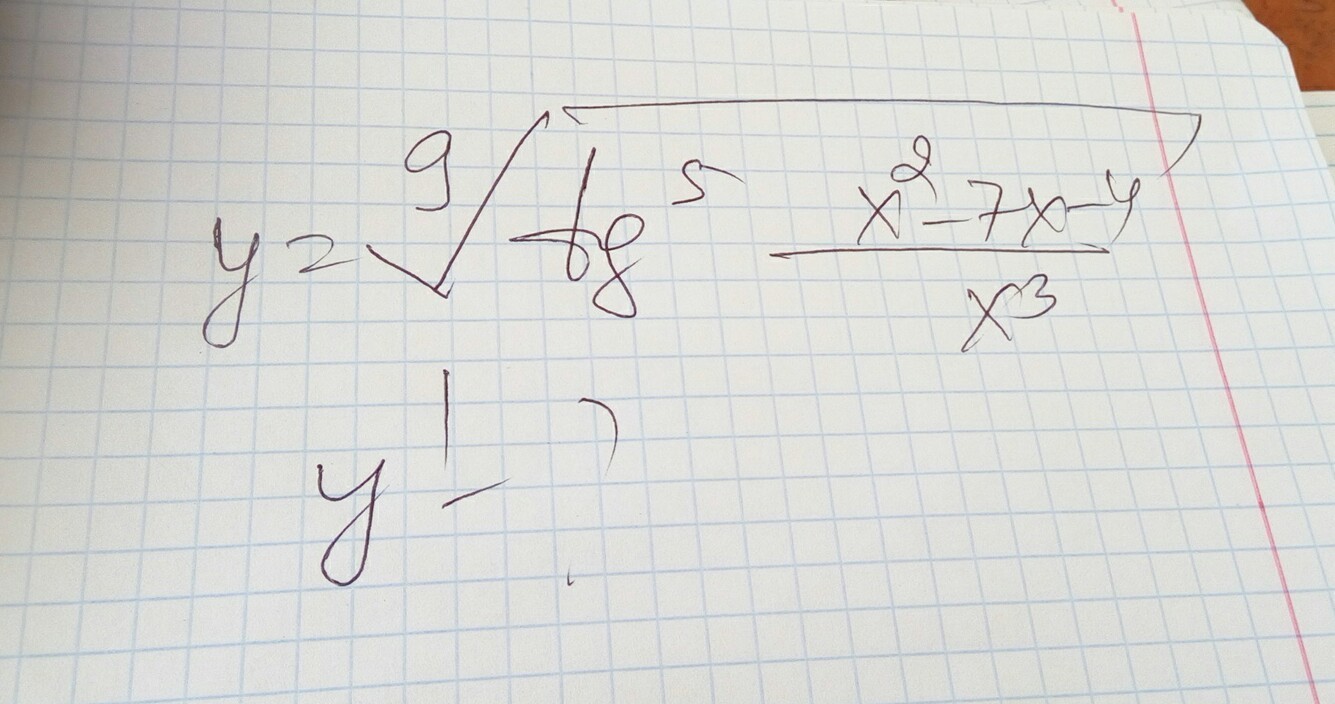 y = \sqrt[9]{tg^5 \frac{x^2-7x-4}{x^3}}
y' - ?